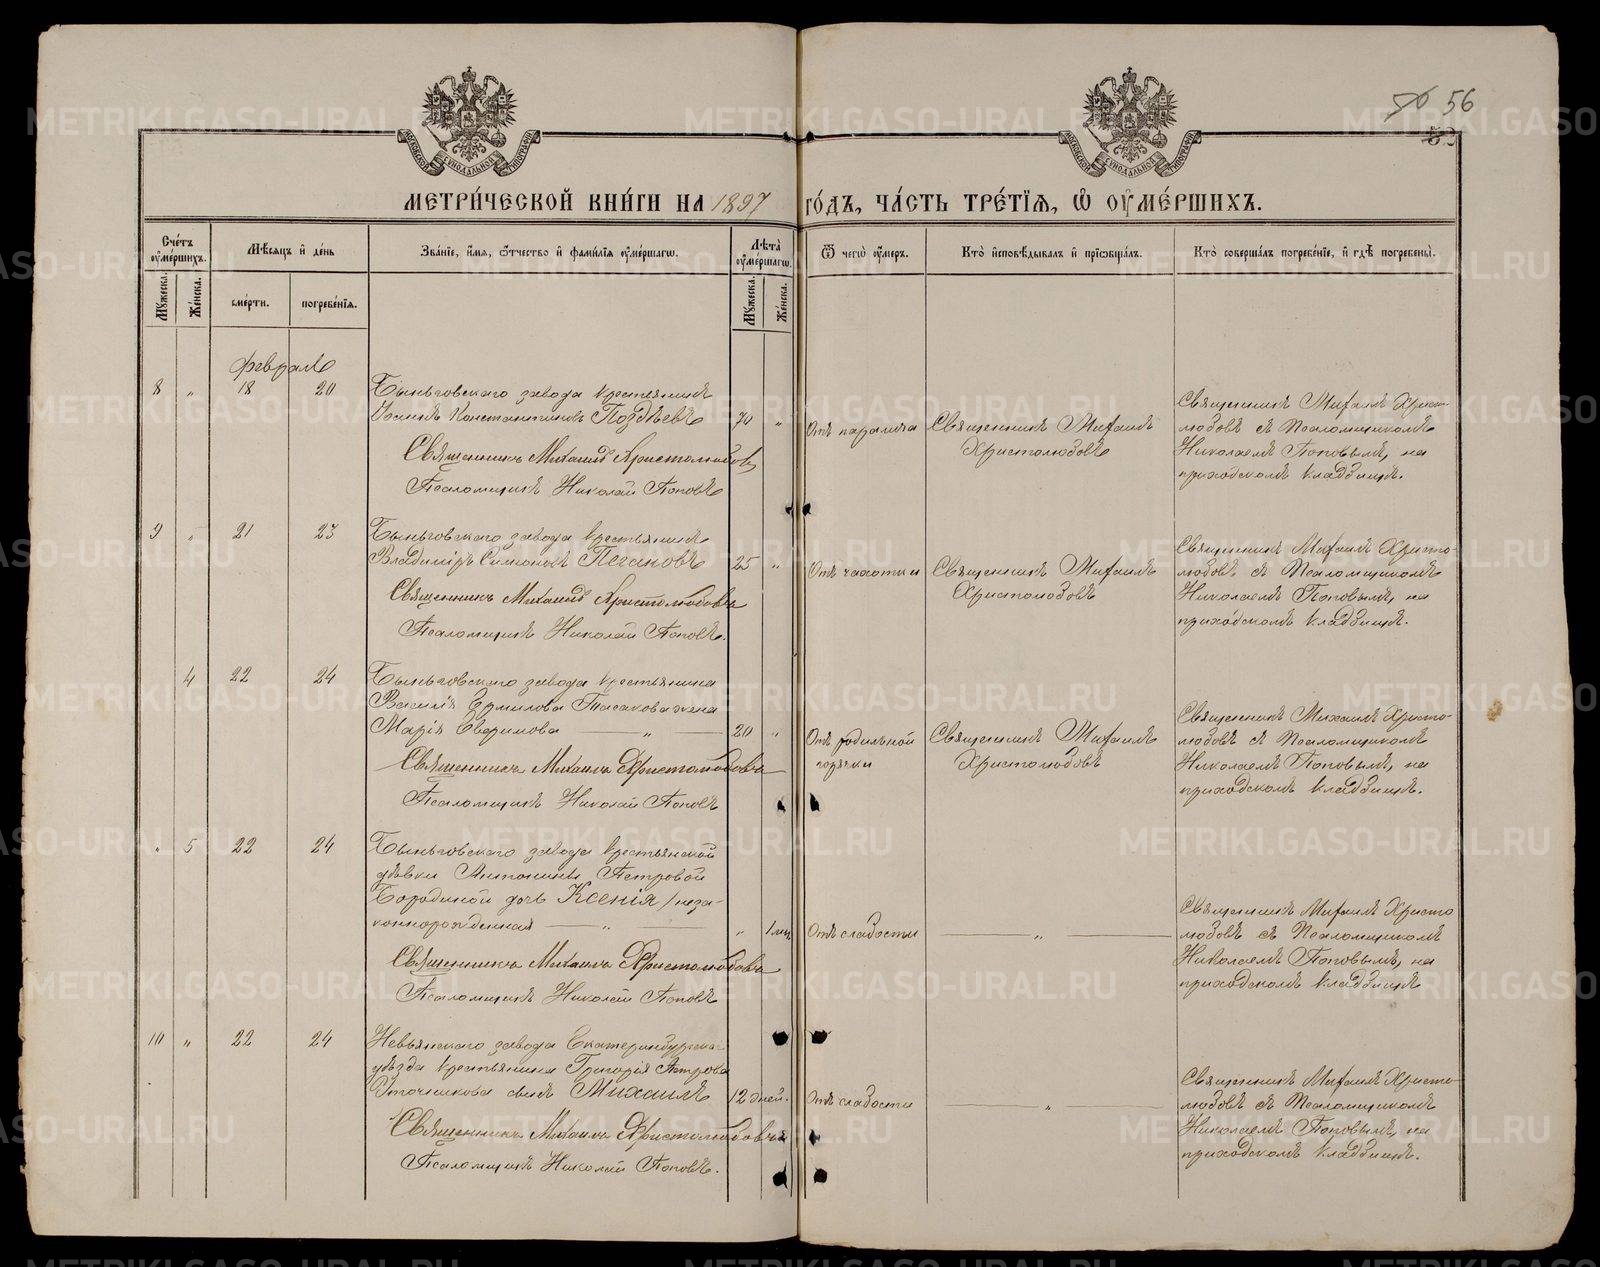 56 56
53
МЕТРИ́ЧЕСКОЙ КНИ́ГИ НА 1897 ГО́ДЪ, ЧА́СТЬ ТРЕ́ТІЯ, Ѡ ОУМЕ́РШИХЪ.
Сче́тъ оуме́ршихъ.
Му́жеска.
Же́нска.
Мѣ́сяцъ и де́нь
сме́рти.
погребе́нїя.
Зва́нїе, и́мя, ѻ́тчество и фами́лїя оуме́ршагѡ.
Лѣ́та оуме́ршагѡ.
Му́жеска.
Же́нска.
Ѿ чегѡ̀ оу́меръ.
Кто̀ исповѣ́дывалъ и прїѡбща́лъ.
Кто̀ соверша́лъ погребе́нїе, и гдѣ̀ погребены̀.
Февраль
8 „ 18 20
Быньговскаго завода крестьянинъ
Константиновъ Поздѣевъ 70 „
Священникъ Михаилъ Христолюбовъ
Псаломщикъ Николай Поповъ
Отъ паралича
Священникъ Михаилъ
Христолюбовъ
Священникъ Михаилъ Христо-
любовъ съ Псаломщикомъ
Николаемъ Поповымъ, на
приходскомъ кладбищѣ.
9 „ 21 23
Быньговскаго завода крестьянинъ
Владиміръ 25 „
Священникъ Михаилъ Христолюбовъ
Псаломщикъ Николай Поповъ.
Отъ чахотки
Священникъ Михаилъ
Христолюбовъ
Священникъ Михаилъ Христо-
любовъ съ Псаломщикомъ
Николаемъ Поповымъ, на
приходскомъ кладбищѣ.
4 22 24
Быньговскаго завода крестьянина
Василія Ермилова жена
Марія — „ — 20 „
Священникъ Михаилъ Христолюбовъ
Псаломщикъ Николай Поповъ
Отъ родильной
горячки
Священникъ Михаилъ
Христолюбовъ
Священникъ Михаилъ Христо-
любовъ съ Псаломщикомъ
Николаемъ Поповымъ, на
приходскомъ кладбищѣ.
„ 5 22 24
Быньговскаго завода крестьянской
дѣвки Антонины Петровой
Бородиной дочь Ксенія /неза-
коннорожденная — „ — „ 1 мѣс.
Священникъ Михаилъ Христолюбовъ
Псаломщикъ Николай Поповъ
Отъ слабости
— „ —
Священникъ Михаилъ Христо
любовъ съ Псаломщикомъ
Николаемъ Поповымъ, на
приходскомъ кладбищѣ
10 „ 22 24
Невьянскаго завода Екатеринбургскаго
уѣзда крестьянина Григорія Петрова
сынъ Михаилъ 12 дней.
Священникъ Михаилъ Христолюбовъ
Псаломщикъ Николай Поповъ.
Отъ слабости
— „ —
Священникъ Михаилъ Христо-
любовъ съ Псаломщикомъ
Николаемъ Поповымъ, на
приходскомъ кладбищѣ.
METRIKI.GASO-URAL.RU